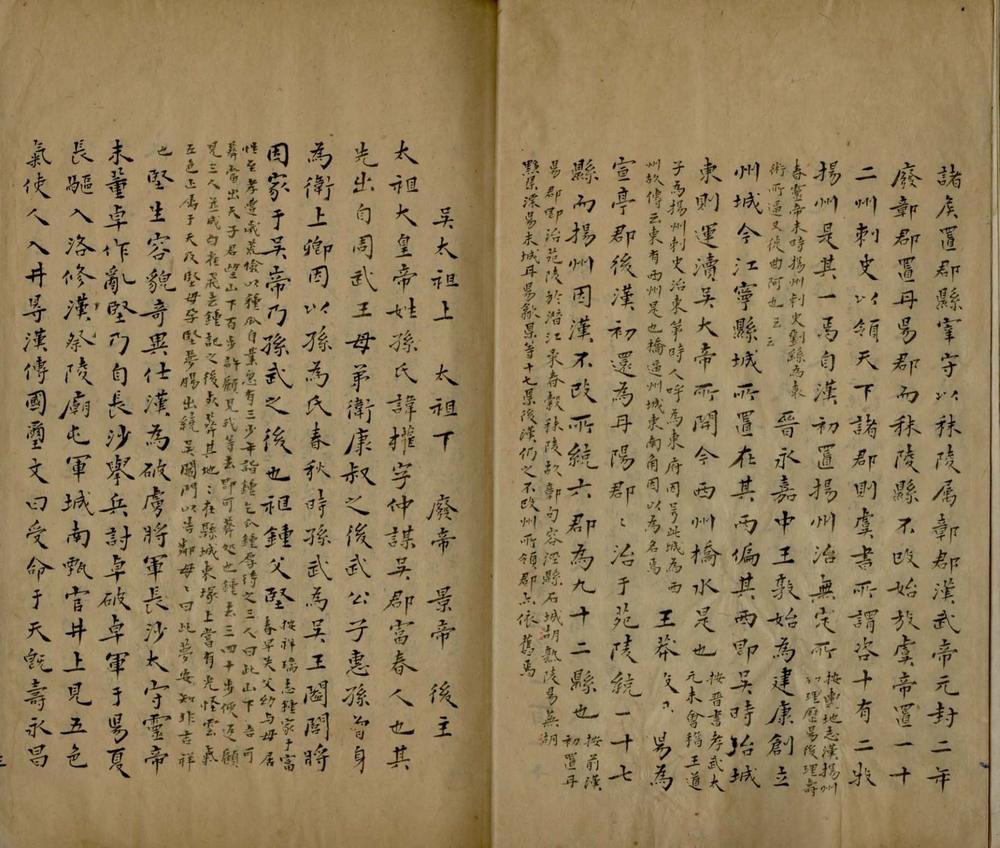 諸矦置郡縣宰守以秣陵属鄣郡漢武帝元封二年
廢鄣郡置丹昜郡而秣陵縣不改始於虞帝置一十
二州刺史以領天下諸郡則虞書所謂咨十有二牧
揚州是其一焉自漢初置揚州治無定所
按輿地志漢揚州
初理歷昜後理壽
春靈帝末時揚州刺史劉繇為袁
術所逼又徙曲阿也云云
晉永嘉中王敦始為建康創立
州城今江寧縣城所置在其西偏其西即吳時冶城
東則運瀆吳大帝所開今西州橋水是也
按晉書孝武太
元末會稽王道
子為揚州刺史治東第時人呼為東府因号此城為西
州故傳云東有西州是也橋逼州城東南角因以為名焉
王莽 昜為
宣亭郡後漢初還為丹陽郡〻治于菀陵統一十七
縣而揚州因漢不改所統六郡為九十二縣也
按前漢
初置丹
昜郡即治菀陵於潛江乘春穀秣陵故鄣句容涇縣石城胡熟陵昜蕪湖
黟 溧昜 城丹昜歙縣等十七縣後漢仍之不改州所領郡亦依舊焉
吳太祖上 太祖下 廢帝 景帝 後主
太祖大皇帝姓孫氏諱權字仲謀吳郡富春人也其
先出自周武王母弟衛康叔之後武公子惠孫曾身
為衛上卿因以孫為氏春秋時孫武為吳王闔閭將
因家于吳帝乃孫武之後也祖鍾父堅
按祥瑞志鍾家于富
春早失父幼与母居
性至孝遭歲荒儉以種瓜自業忽有三少年詣鍾乞瓜鍾厚待之三人曰此山下善可
葬當出天子君望山下百步許顧見我等去即可葬処也鍾去三四十步便返顧
見三人並成白鶴飛去鍾記之後 葬其地〻在縣城東塚上當有光怪雲氣
五色上属于天及堅母孕堅夢腸出繞吳閶門以告鄰母〻曰此夢安知非吉祥
也
堅生容貌奇異仕漢為破虜將軍長沙太守靈帝
末董卓作亂堅乃自長沙舉兵討卓破卓軍于昜夏
長驅入洛修漢祭陵廟屯軍城南甄官井上見五色
氣使人入井㝵漢傳國璽文曰受命于天既壽永昌